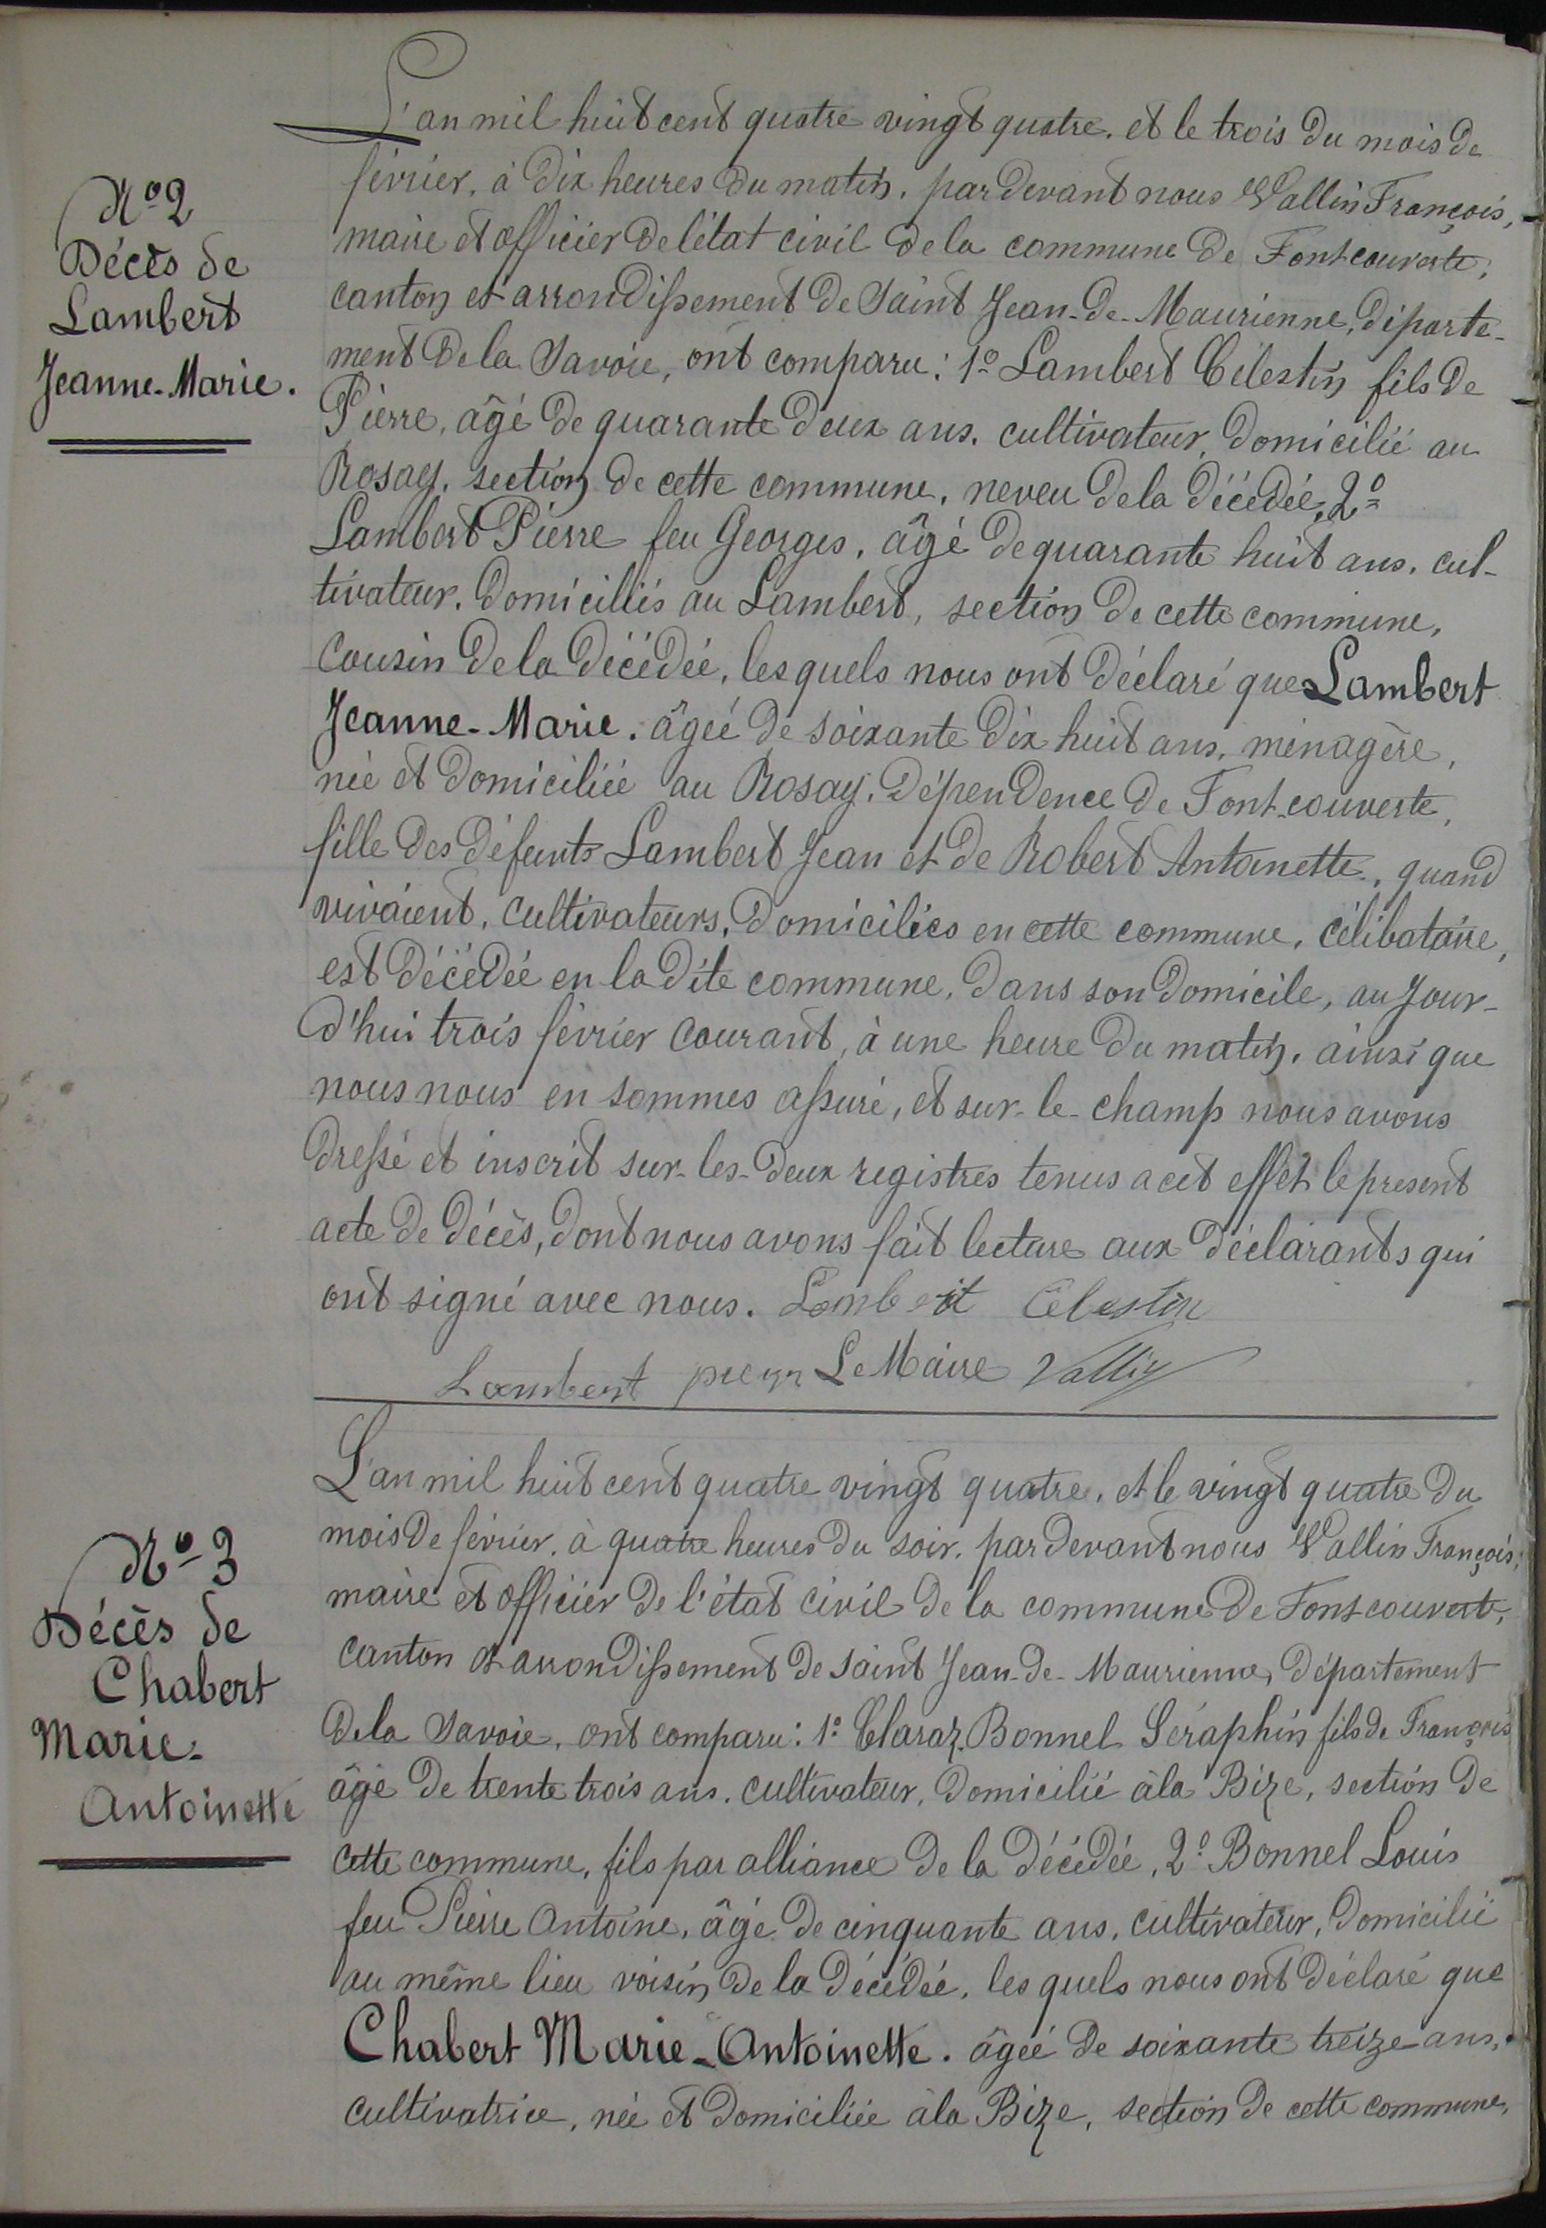 L'an mil huit cent quatre vingt quatre. et le trois du mois de
février. à dix heures du matin. par devant nous Vallin François,
maire et officier de l'état civil de la commune de Fontcouverte,
canton et arrondissement de Saint Jean-de-Maurienne, départe-
ment de la Savoie, ont comparu: 1º Lambert Célestin fils de
Pierre, âgé de quarante deux ans. cultivateur, domicilié au
Rosay, section de cette commune, neveu de la décédée, 2º
Lambert Pierre feu Georges, âgé de quarante huit ans, cul-
tivateur. domiciliés au Lambert, section de cette commune,
cousin de la décédée, les quels nous ont déclaré que Lambert
Jeanne-Marie. âgée de soixante dix huit ans, ménagère,
née et domiciliée au Rosay, dépendence de Fontcouverte,
fille des défunts Lambert Jean et de Robert Antoinette, quand
vivaient, cultivateurs, domiciliés en cette commune, célibataire,
est décédée en la dite commune, dans son domicile, au jour-
d'hui trois février courant, à une heure du matin, ainsi que
nous nous en sommes assuré, et sur-le-champ nous avons
dressé et inscrit sur-les-deux registres tenus a cet effet le present
acte de décès, dont nous avons fait lecture aux déclarants qui
ont signé avec nous. Lambert Célestin
Lambert pierr Le Maire Vallin
Nº 2
Décès de
Lambert
Jeanne-Marie.
L'an mil huit cent quatre vingt quatre, et le vingt quatre du
mois de février. à quatre heures du soir. par devant nous Vallin François,
maire et officier de l'état civil de la commune de Fontcouverte,
canton et arrondissement de Saint Jean-de-Maurienne, département
de la Savoie, ont comparu: 1º Claraz Bonnel Séraphin fils de François
âgé de trente trois ans. cultivateur, domicilié à la Bize, section de
cette commune, fils par alliance de la décédée, 2º Bonnel Louis
feu Pierre Antoine, âgé de cinquante ans, cultivateur, domicilié
au même lieu voisin de la décédée, les quels nous ont déclaré que
Chabert Marie-Antoinette. âgée de soixante treize ans,
cultivatrice, née et domiciliée à la Bize, section de cette commune,
Nº 3
Décès de
Chabert
Marie-
Antoinette